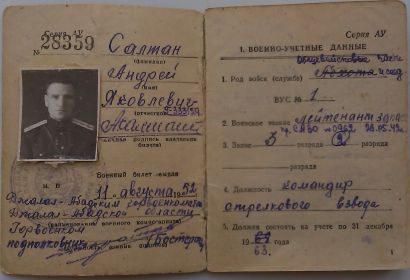 Серия АУ
№ 28359
Салтан
(фамилия)
Андрей
(имя)
Яковлевич
(отчество)
личная подпись владельца
билета)
М. П.
Военный билет выдан
11 августа 1952
Джалал-Абадским горвоенкоматом
Джалал-Абадской области
Горвоенком
подполковник
Серия АУ
1. ВОЕННО-УЧЕТНЫЕ ДАННЫЕ
общевойсковые
1. Род войск (службы)
ВУС № 1
2. Воинское звание лейтенант запаса
3. Запас 3 разряда 2
разряда
4. Должность командир
стрелкового взвода
5. Должен состоять на учете по 31 декабря
19 года
63.
1